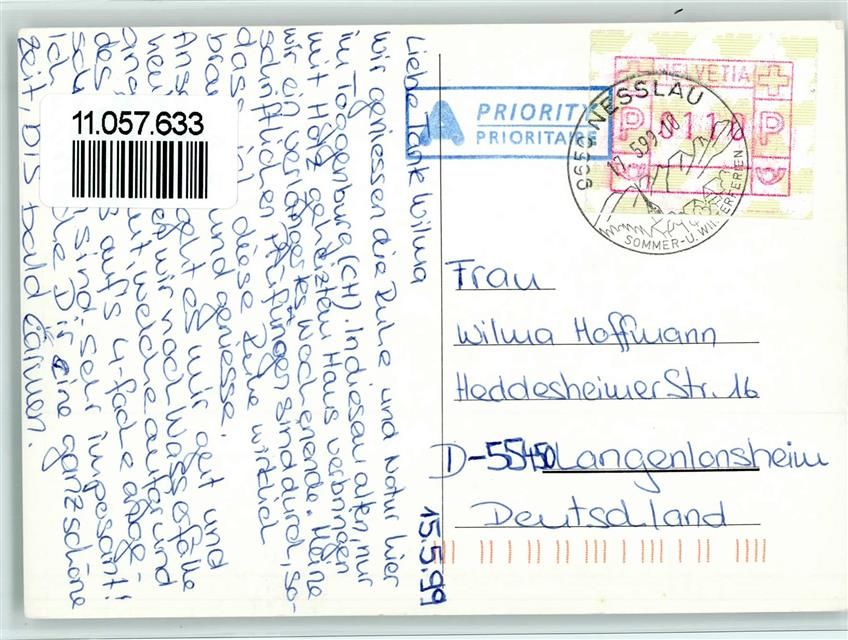 15.5.99
Liebe Tante Wilma
wir geniessen die Ruhe und Natur hier
im Toggenburg (CH). In diesem alten, nur
mit Holz geheizten Haus verbringen
wir ein verlängertes Wochenende. Meine
schriftlichen Prüfungen sind durch, so-
dass ich diese Ruhe wirklich
und geniesse.
geht es mir gut und
wir noch Wasserfälle
welche aufgrund
des aufs 4-fache ange-
sind: sehr imposant!
Ich Dir eine ganz schöne
Zeit, bis bald Carmen.
11.057.633
PRIORITY
PRIORITAIRE
HELVETIA
P 0110 P
9650 NESSLAU
17.5.99-18
SOMMER-U. WINTERFERIEN
Frau
Wilma Hoffmann
Heddesheimer Str. 16
D-55450 Langenlonsheim
Deutschland